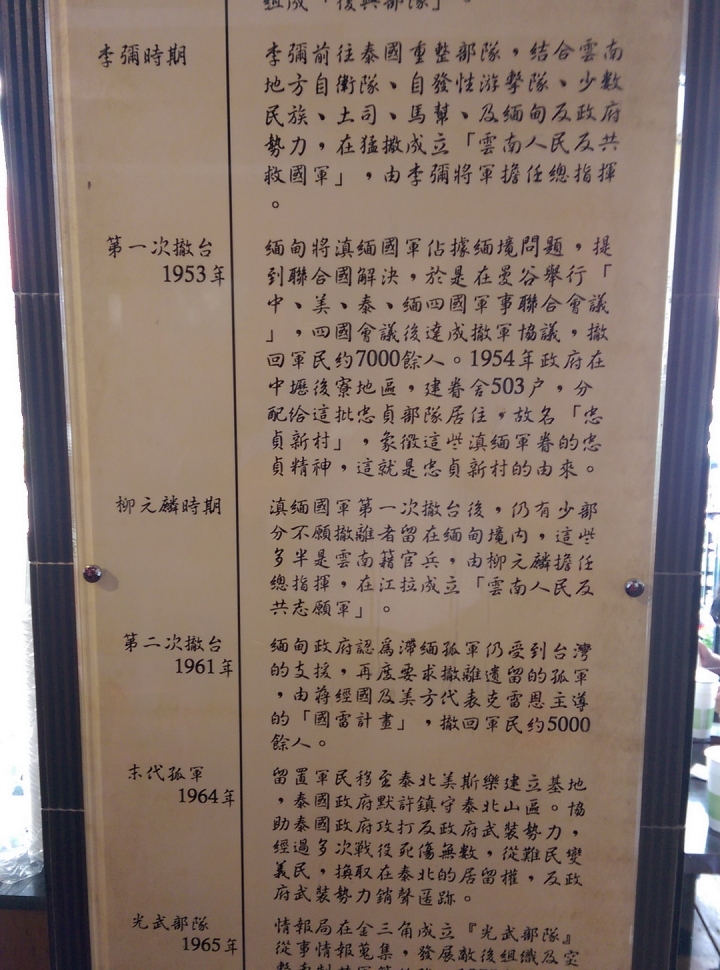 組成「復興部隊」。
李彌時期
李彌前往泰國重整部隊，結合雲南
地方自衛隊、自發性游擊隊、少數
民族、土司、馬幫、及緬甸反政府
勢力，在猛撒成立「雲南人民反共
救國軍」，由李彌將軍擔任總指揮
。
第一次撤台
1953年
緬甸將滇緬國軍佔據緬境問題，提
到聯合國解決，於是在曼谷舉行「
中、美、泰、緬四國軍事聯合會議
」，四國會議後達成撤軍協議，撤
回軍民約7000餘人。1954年政府在
中壢後寮地區，建眷舍503户，分
配給這批忠貞部隊居住，故名「忠
貞新村」，象徵這些滇緬軍眷的忠
貞精神，這就是忠貞新村的由來。
柳元麟時期
滇緬國軍第一次撤台後，仍有少部
分不願撤離者留在緬甸境內，這些
多半是雲南籍官兵，由柳元麟擔任
總指揮，在江拉成立「雲南人民反
共志願軍」。
第二次撤台
1961年
緬甸政府認為滯緬孤軍仍受到台灣
的支援，再度要求撤離遺留的孤軍
，由蔣經國及美方代表克雷恩主導
的「國雷計畫」，撤回軍民約5000
餘人。
末代孤軍
1964年
留置軍民移至泰北美斯樂建立基地
，泰國政府默許鎮守泰北山區。協
助泰國政府攻打反政府武裝勢力，
經過多次戰役死傷無數，從難民變
義民，換取在泰北的居留權，反政
府武裝勢力銷聲匿跡。
光武部隊
1965年
情報局在金三角成立『光武部隊』
從事情報蒐集，發展敵後組織及突